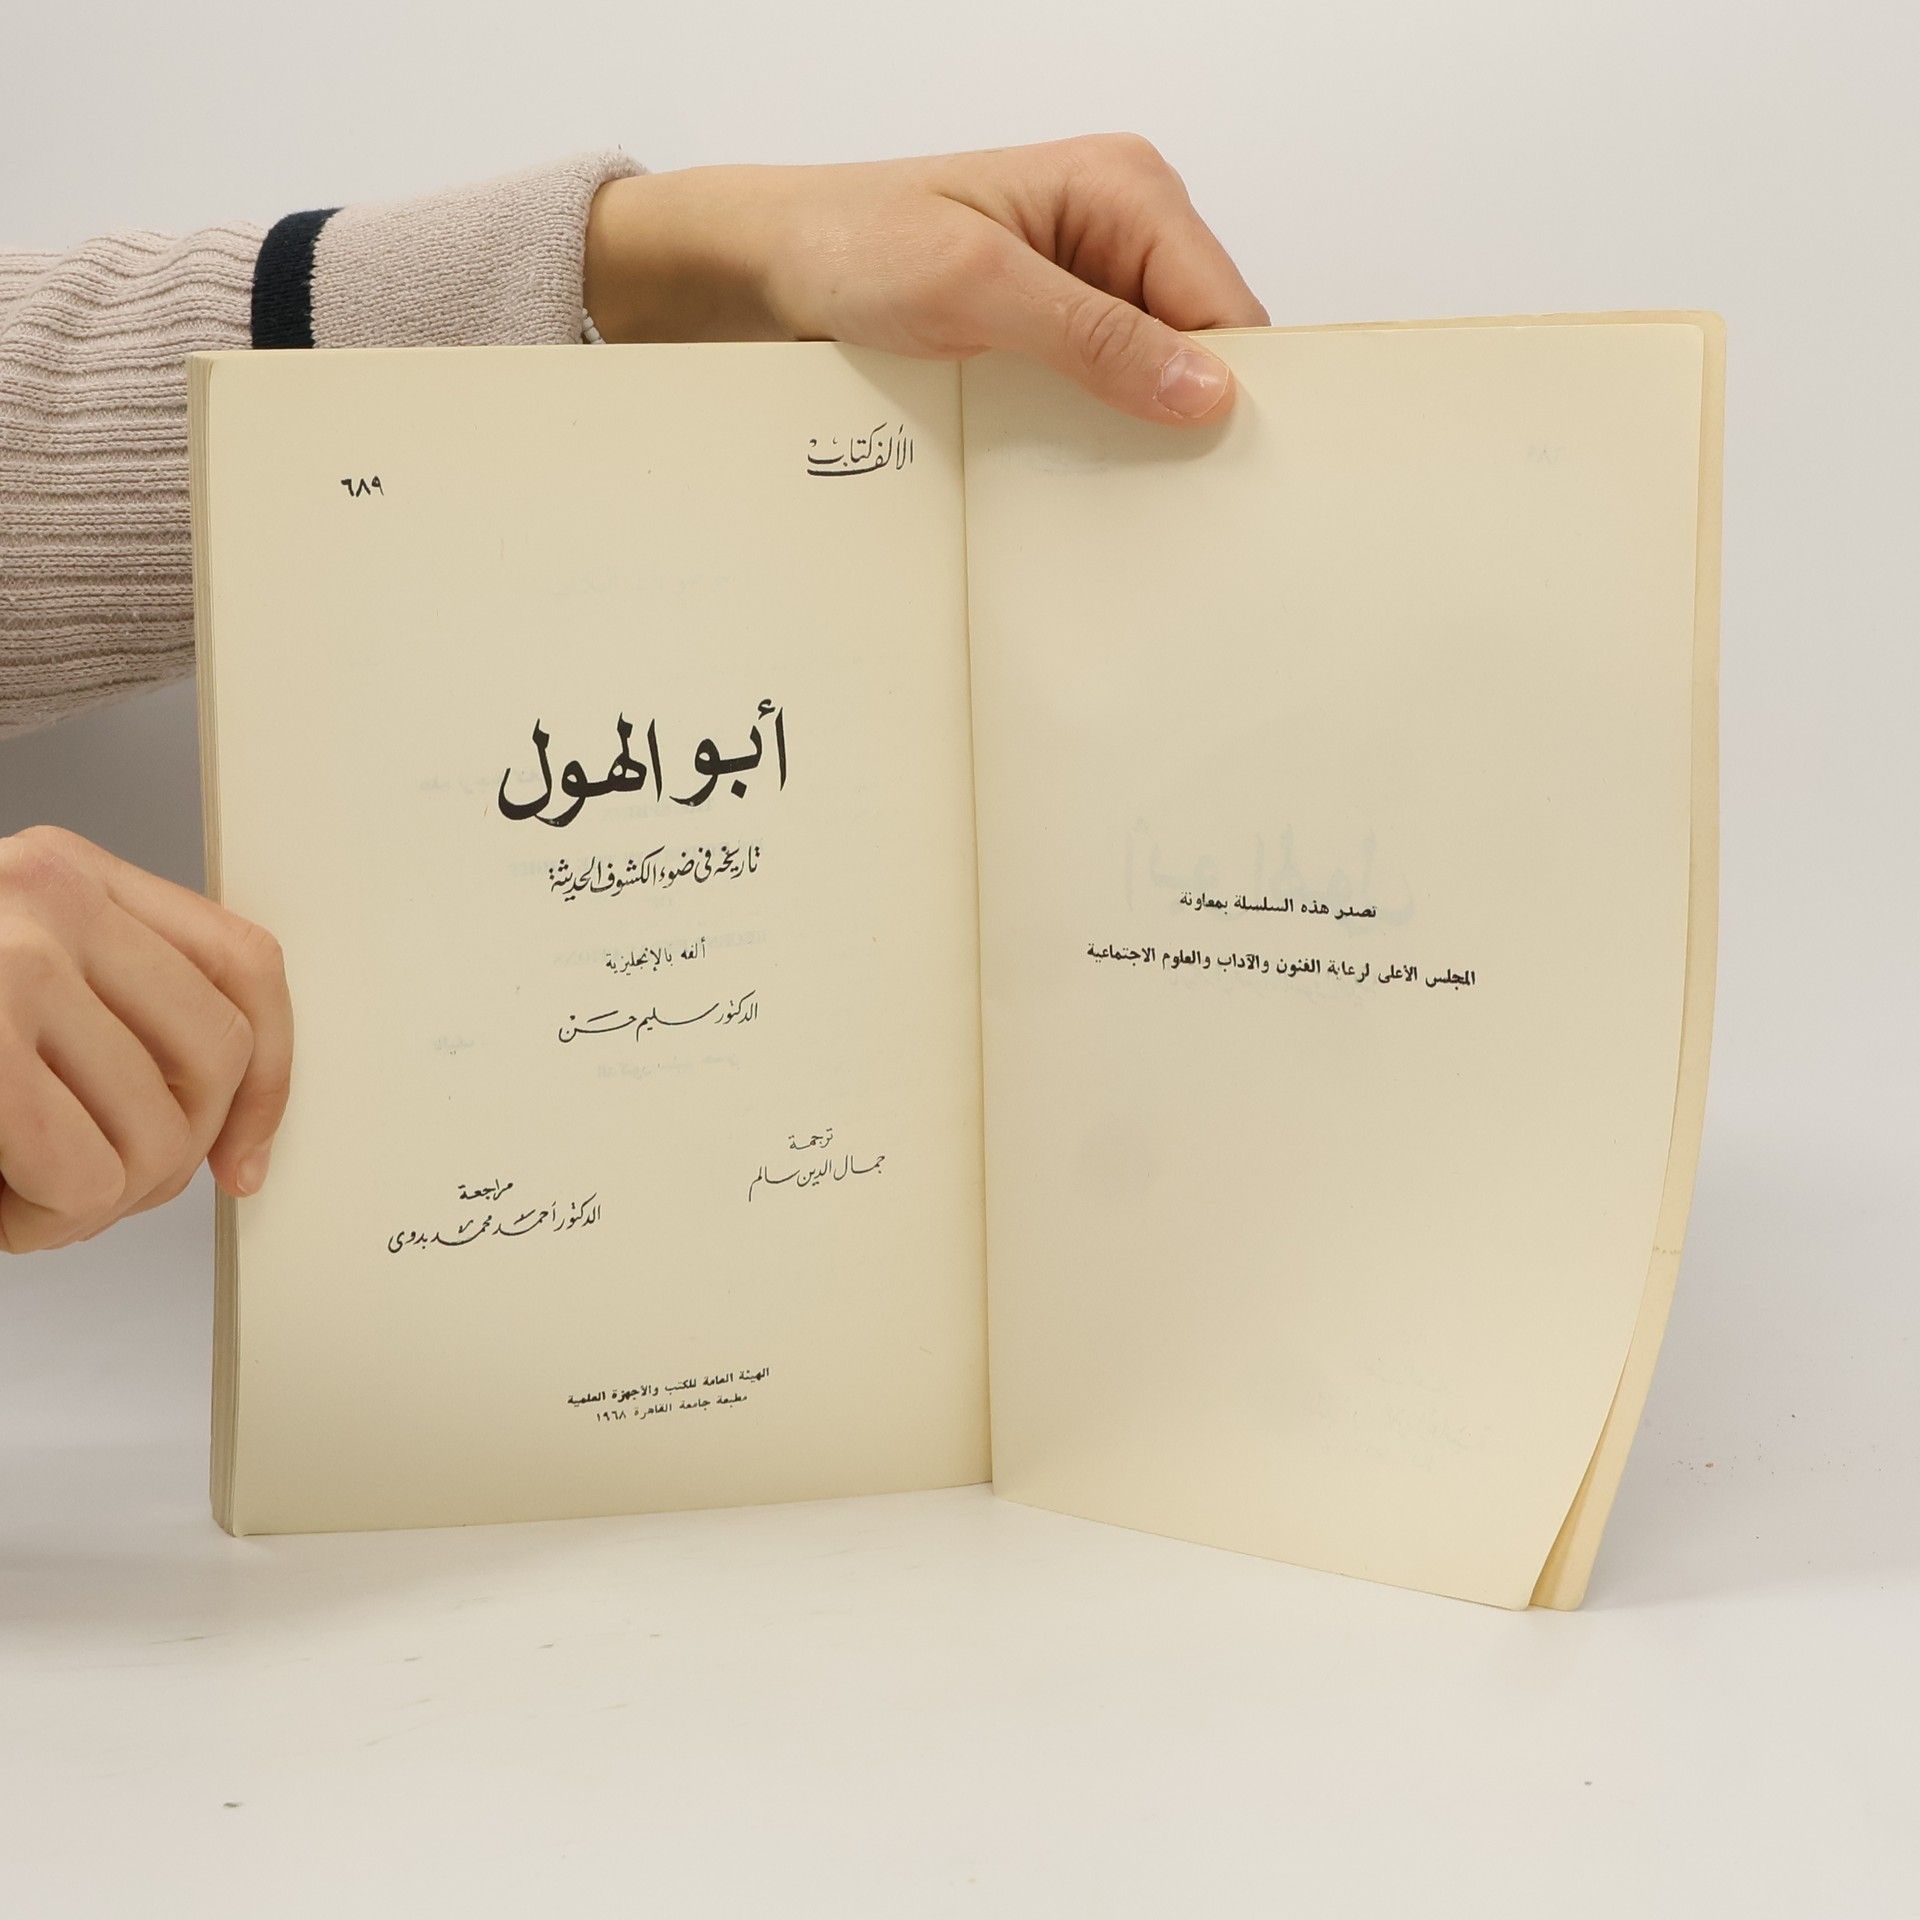 تصدر هذه السلسلة بمعاونة
المجلس الأعلى لرعاية الفنون والآداب والعلوم الاجتماعية
الألف كتاب
٦٨٩
أبو الهول
تاريخه فى ضوء الكشوف الحديثة
ألفه بالإنجليزية
الدكتور سليم حسن
ترجمة
جمال الدين سالم
مراجعة
الدكتور أحمد محمد بدوى
الهيئة العامة للكتب والأجهزة العلمية
مطبعة جامعة القاهرة ١٩٦٨